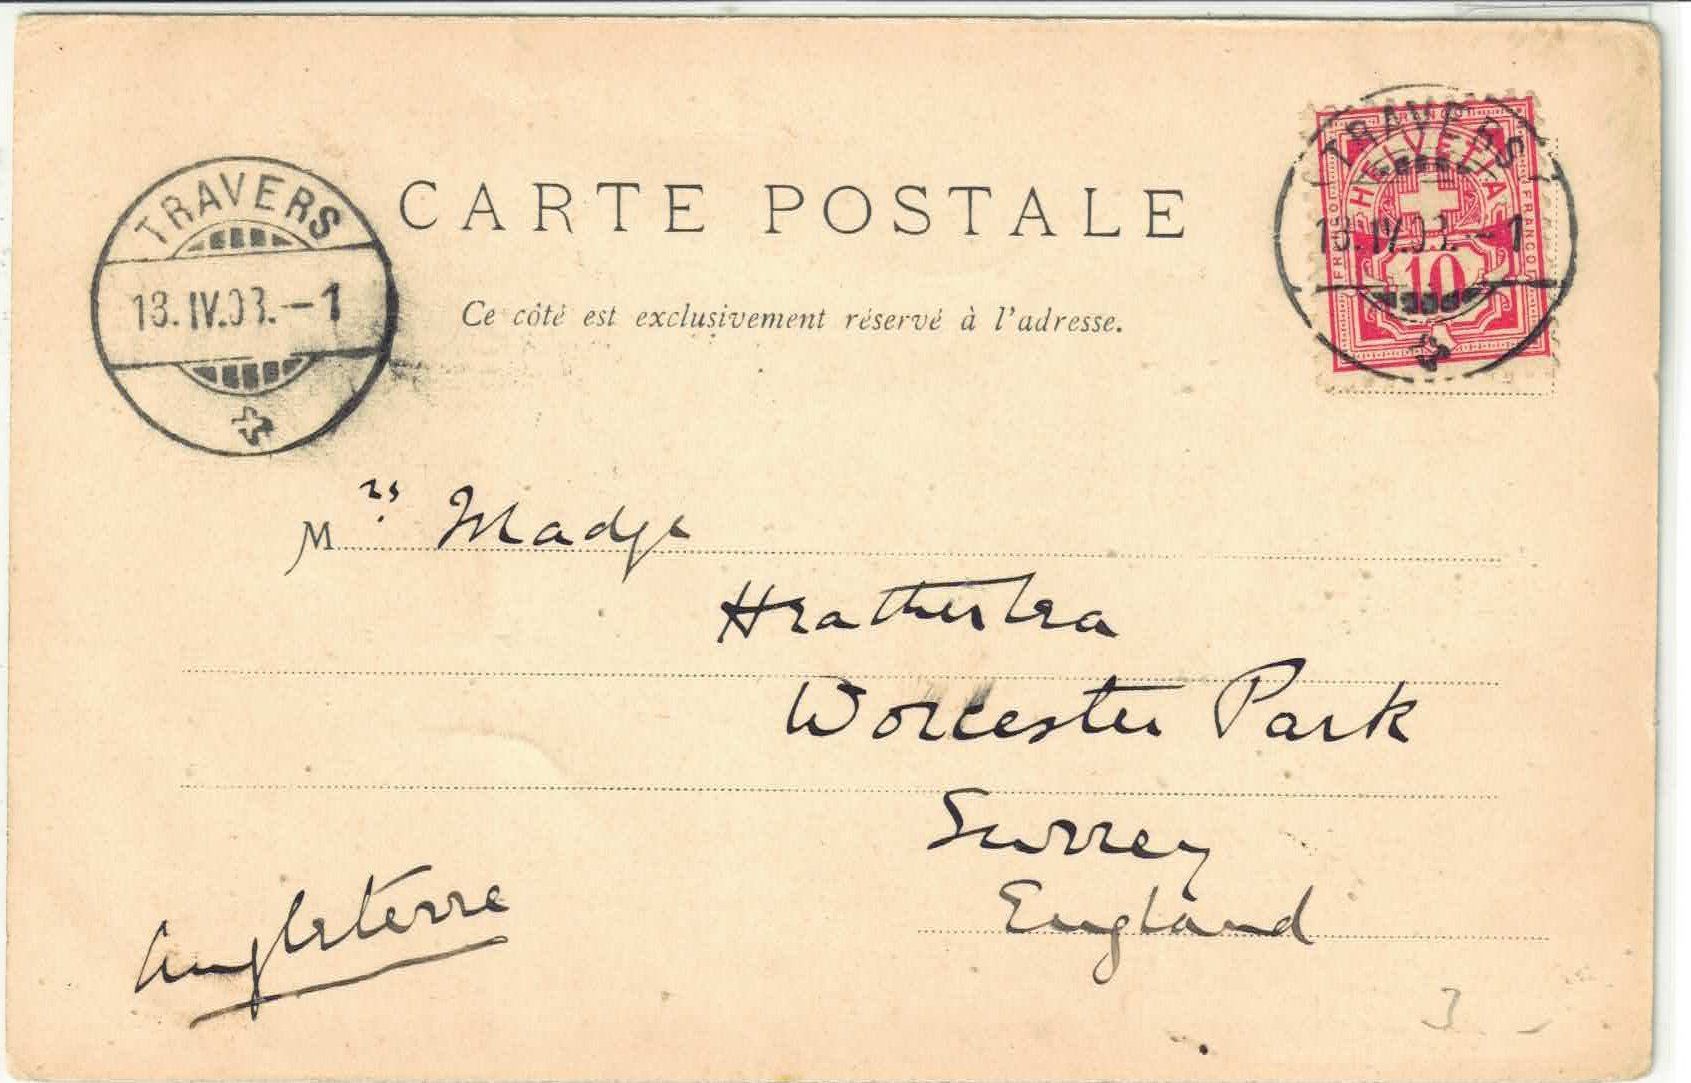 CARTE POSTALE
Ce côté est exclusivement réservé à l'adresse.
TRAVERS
13.IV.03.–1
TRAVERS
13.IV.03.–1
HELVETIA
FRANCO
FRANCO
10
Mrs Madge
Heatherlea
Worcester Park
Surrey
England
Angleterre
3